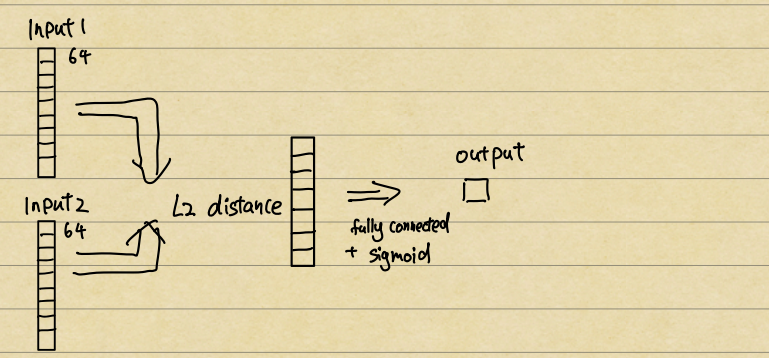 Input 1
64
Input 2
64
L2 distance
fully connected
+ sigmoid
output